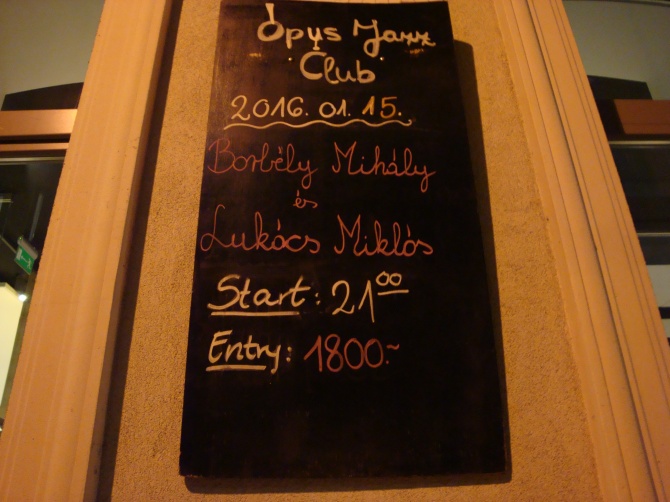 Opus Jazz
Club
2016. 01. 15.
Borbély Mihály
és
Lukács Miklós
Start: 21 00
Entry: 1800.-